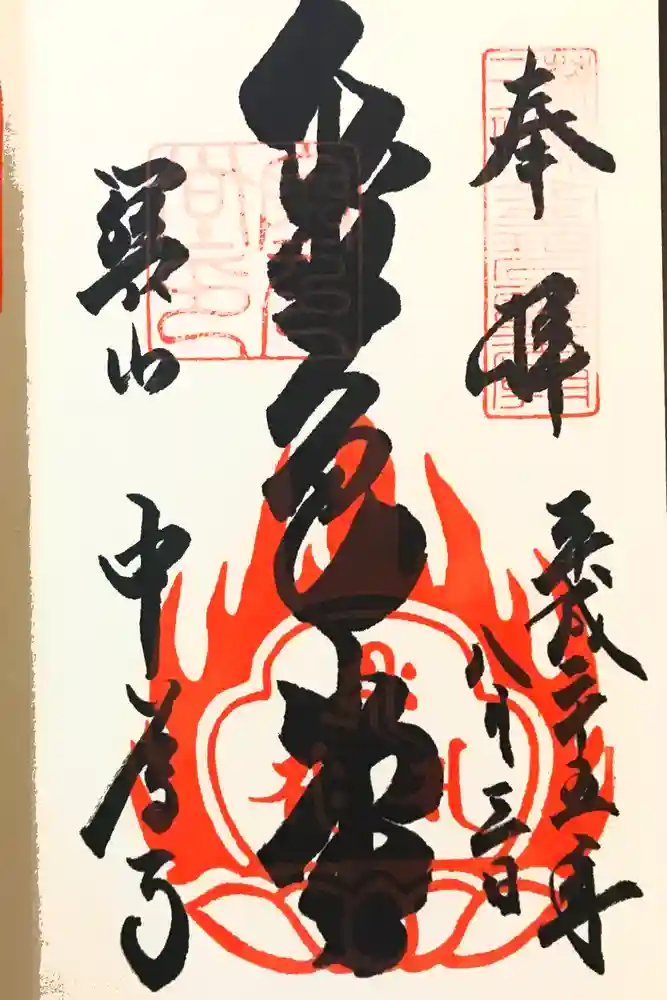 奉拝
平成二十五年
八月三日
金色堂
關山
中尊寺